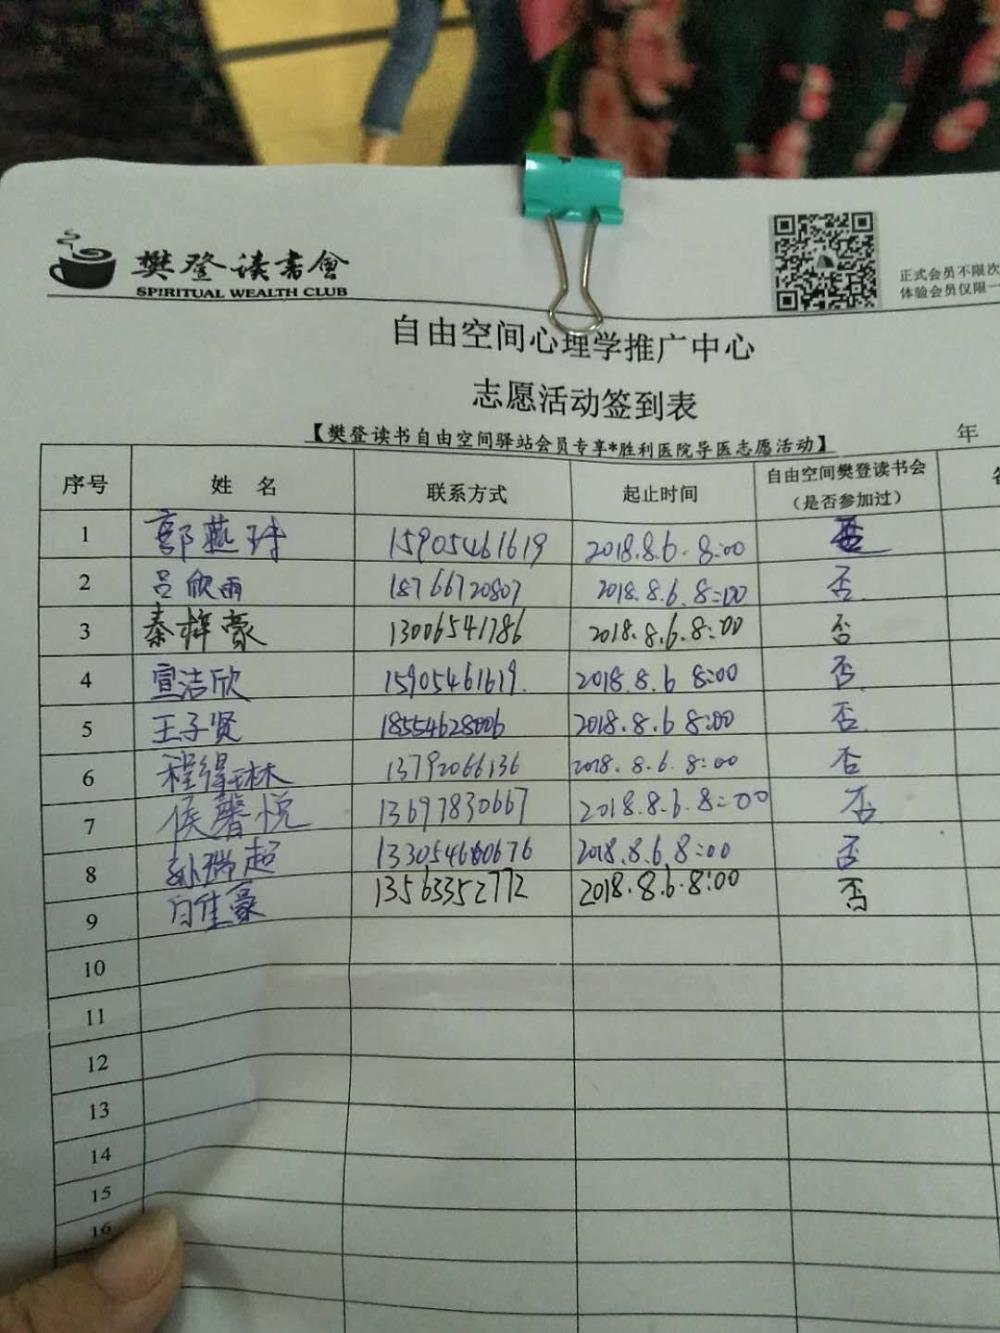 樊登读书会
SPIRITUAL WEALTH CLUB
正式会员不限次
体验会员仅限一
自由空间心理学推广中心
志愿活动签到表
【樊登读书自由空间驿站会员专享*胜利医院导医志愿活动】
年
序号 姓 名 联系方式 起止时间 自由空间樊登读书会（是否参加过）
1 郭燕 15905461619 2018.8.6.8:00 否
2 吕欣雨 18766720807 2018.8.6.8:00 否
3 秦梓豪 13006541786 2018.8.6.8:00 否
4 宣洁欣 15905461619. 2018.8.6 8:00 否
5 王子贤 18554628006 2018.8.6 8:00 否
6 程得琳 13792066136 2018.8.6.8:00 否
7 侯馨悦 13697830667 2018.8.6.8:00 否
8 孙瑞超 13305460676 2018.8.6.8:00 否
9 白佳豪 13563352772 2018.8.6.8:00 否
10
11
12
13
14
15
16